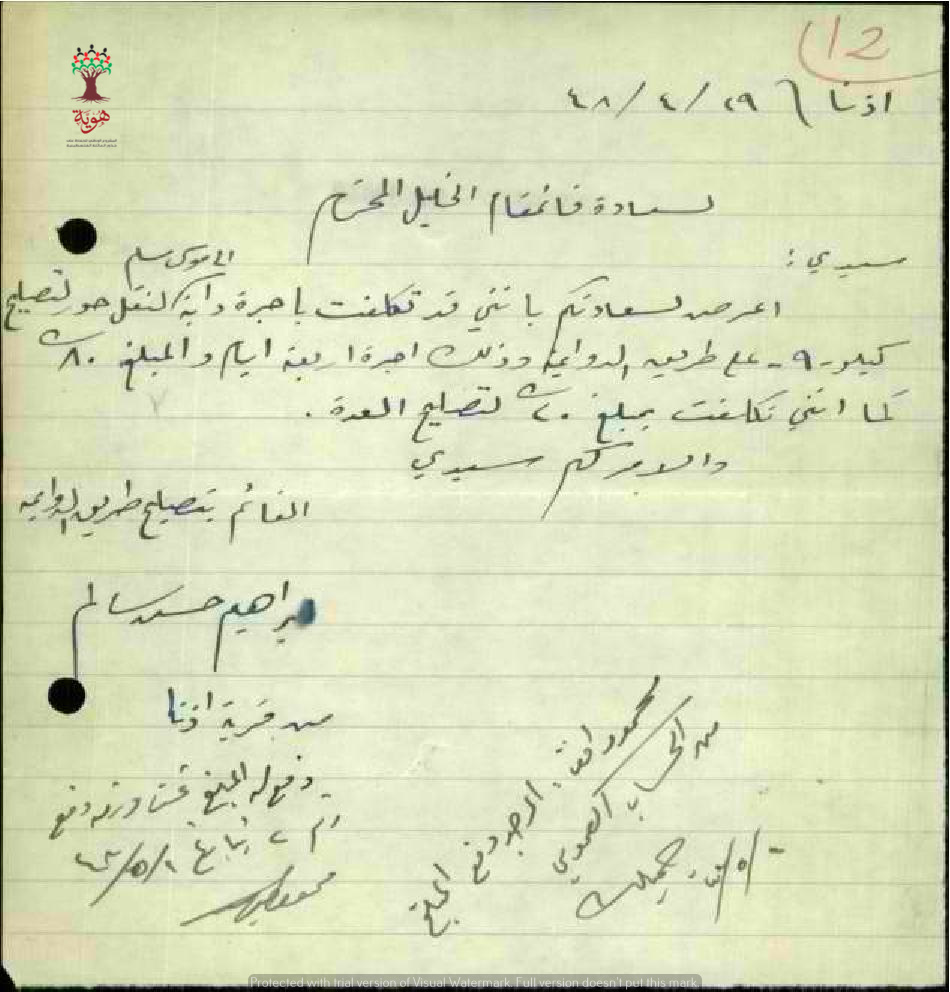 12
اذنا ٢٩ / ٤ / ٤٨
هوية
لسعادة قائمقام الخليل المحترم
سيدي :
الى موسى سليم
اعرض لسعادتكم بانني قد تكلفت باجرة دابة لنقل حور لتصليح
كيلو - ٩ - على طريق الدوايمة وذلك اجرة اربعة ايام والمبلغ ٨٠
كما انني تكلفت بمبلغ ٢٠ لتصليح العدة .
والامر لكم سيدي
القائم بتصليح طريق الدوايمه
ابراهيم حسن سالم
من قرية اذنا
محمود افندي ارجو دفع المبلغ
من الحساب
دفع له المبلغ ورقة دفع
رقم ٢
Protected with trial version of Visual Watermark. Full version doesn't put this mark.